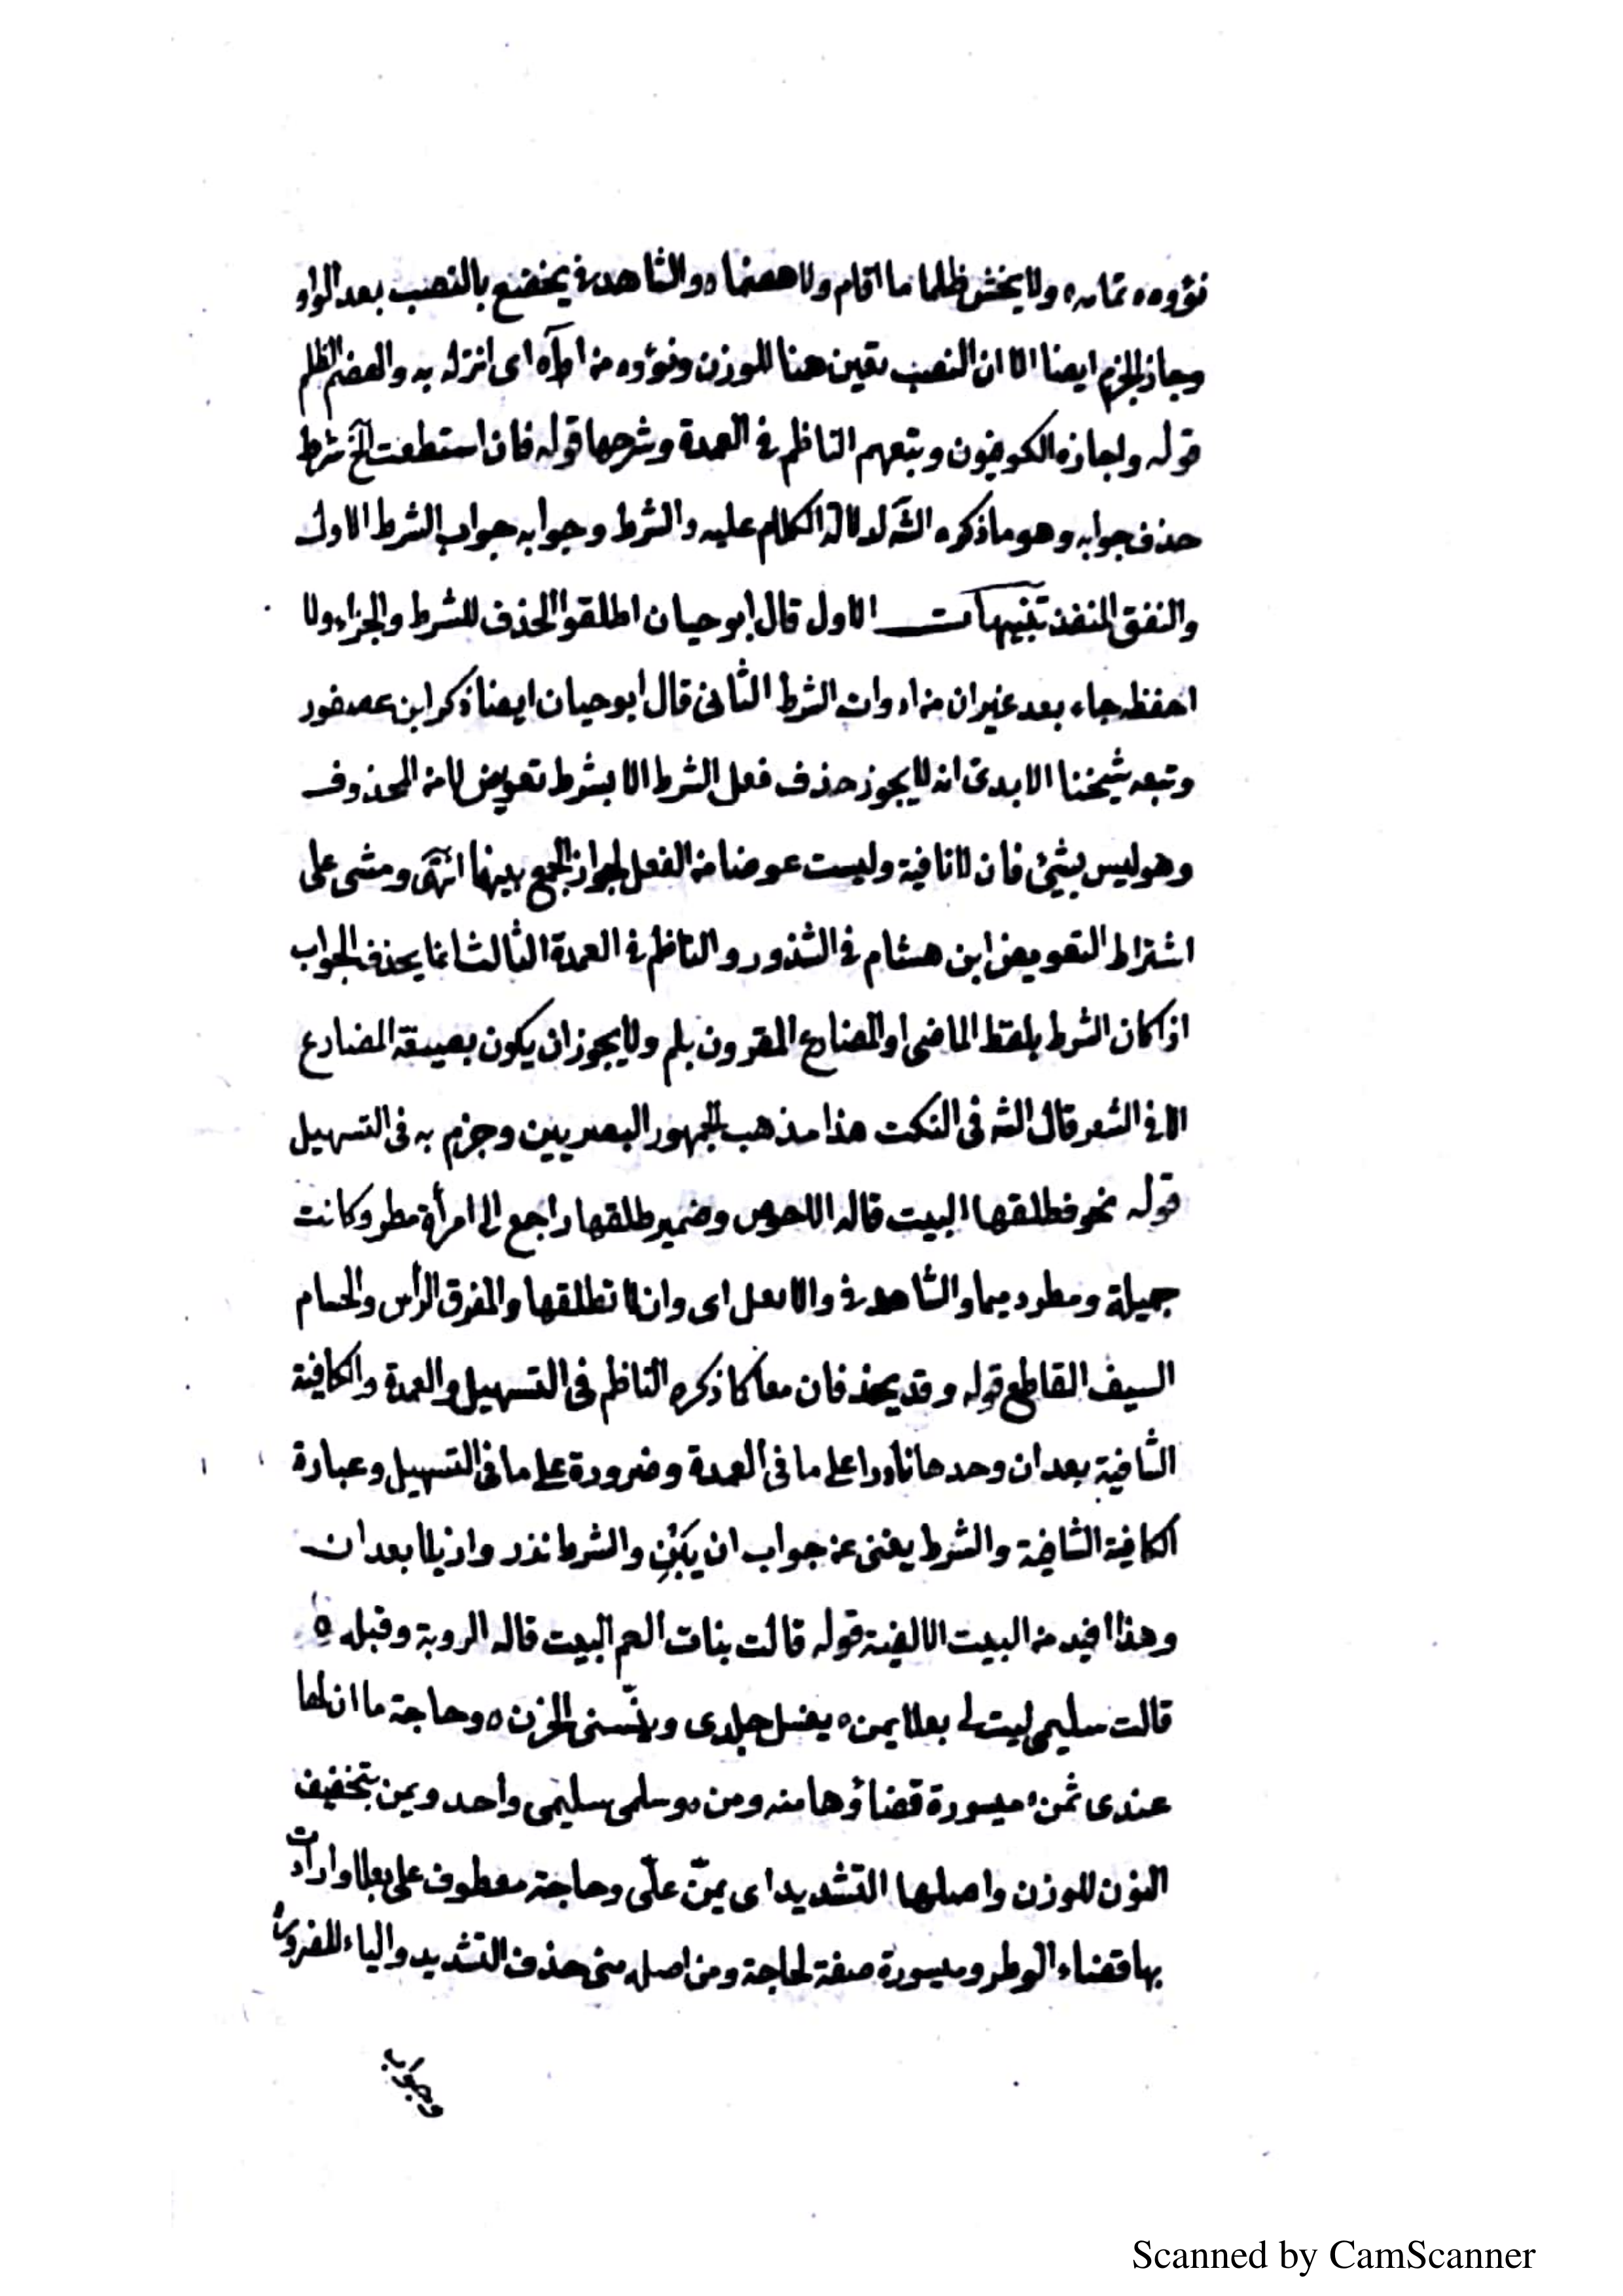 نؤوه ه تمامه ه ولا يخش ظلما ما اقام ولا هضما ه والشاهد في يخضع بالنصب بعد الواو
وجاز الجزم ايضا الا ان النصب يتعين هنا للوزن ونؤوه من اواه اى انزله به والهضم الظلم
قوله واجازه الكوفيون وتبعهم الناظم في العمدة وشرحها قوله فان استطعت الخ شرط
حذف جوابه وهو ما ذكره الشه لدلالة الكلام عليه والشرط وجوابه جواب الشرط الاول
والنفق المنفذ تنبيهات الاول قال ابو حيان اطلقوا الحذف للشرط والجزاء ولا
احفظه جاء بعد غير ان من ادوات الشرط الثانى قال ابو حيان ايضا ذكر ابن عصفور
وتبعه شيخنا الابدى انه لا يجوز حذف فعل الشرط الا بشرط تعويض لا من المحذوف
وهو ليس بشئ فان لا نافية وليست عوضا من الفعل لجواز الجمع بينهما انتهى ومشى على
اشتراط التعويض ابن هشام في الشذور والناظم في العمدة الثالث انما يحذف الجواب
اذا كان الشرط بلفظ الماضى او المضارع المقرون بلم ولا يجوز ان يكون بصيغة المضارع
الا في الشعر قال الشه فى النكت هذا مذهب الجمهور البصريين وجزم به فى التسهيل
قوله نحو فطلقها البيت قاله الاحوص وضمير طلقها راجع الى امرأة مطر وكانت
جميلة ومطر دميما والشاهد في والا يعل اى وان لا تطلقها والمفرق الرأس والحسام
السيف القاطع قوله وقد يحذفان معا كما ذكره الناظم فى التسهيل والعمدة والكافية
الشافية بعد ان وحدها نادرا على ما فى العمدة وضرورة على ما فى التسهيل وعبارة
الكافية الشافية والشرط يغنى عن جواب ان يَبِنِ والشرط نذر وازيلا بعد ان
وهذا افيد من البيت الالفية قوله قالت بنات العم البيت قاله الروبة وقبله ه
قالت سليمى ليت لى بعلا يمن ه يغسل جلدى وينسّنى الحزن ه وحاجة ما ان لها
عندى ثمن ه ميسورة قضاؤها منه ومن ه وسلمى سليمى واحد ويمن بتخفيف
النون للوزن واصلها التشديد اى يمنّ علىّ وحاجة معطوف على بعلا وارادت
بها قضاء الوطر وميسورة صفة لحاجة ومن اصله منى حذف التشديد والياء للضرورة